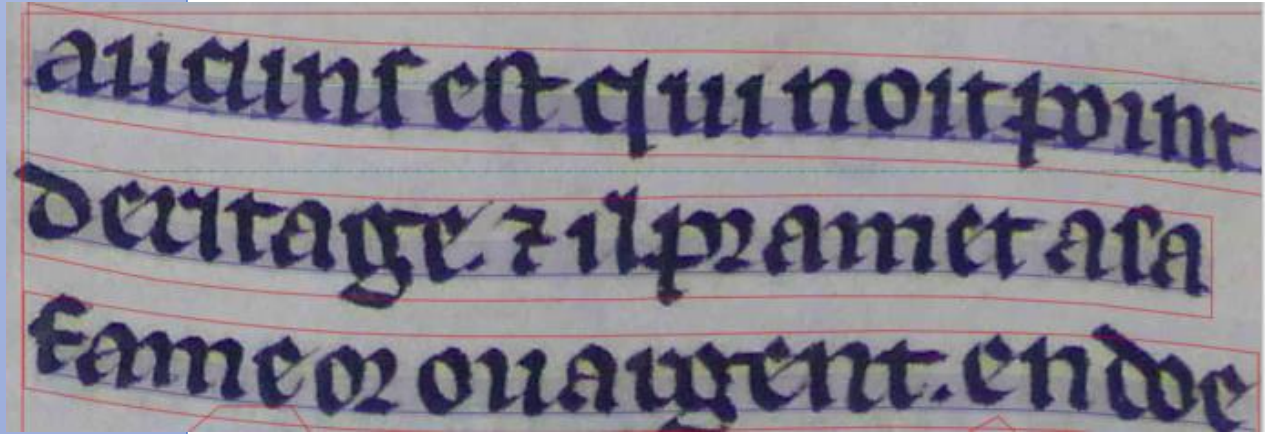 aucunſ eſt qui noit point
deritage ⁊ il ꝓꝛamet aſa
fame oꝛ ou argent. en doe